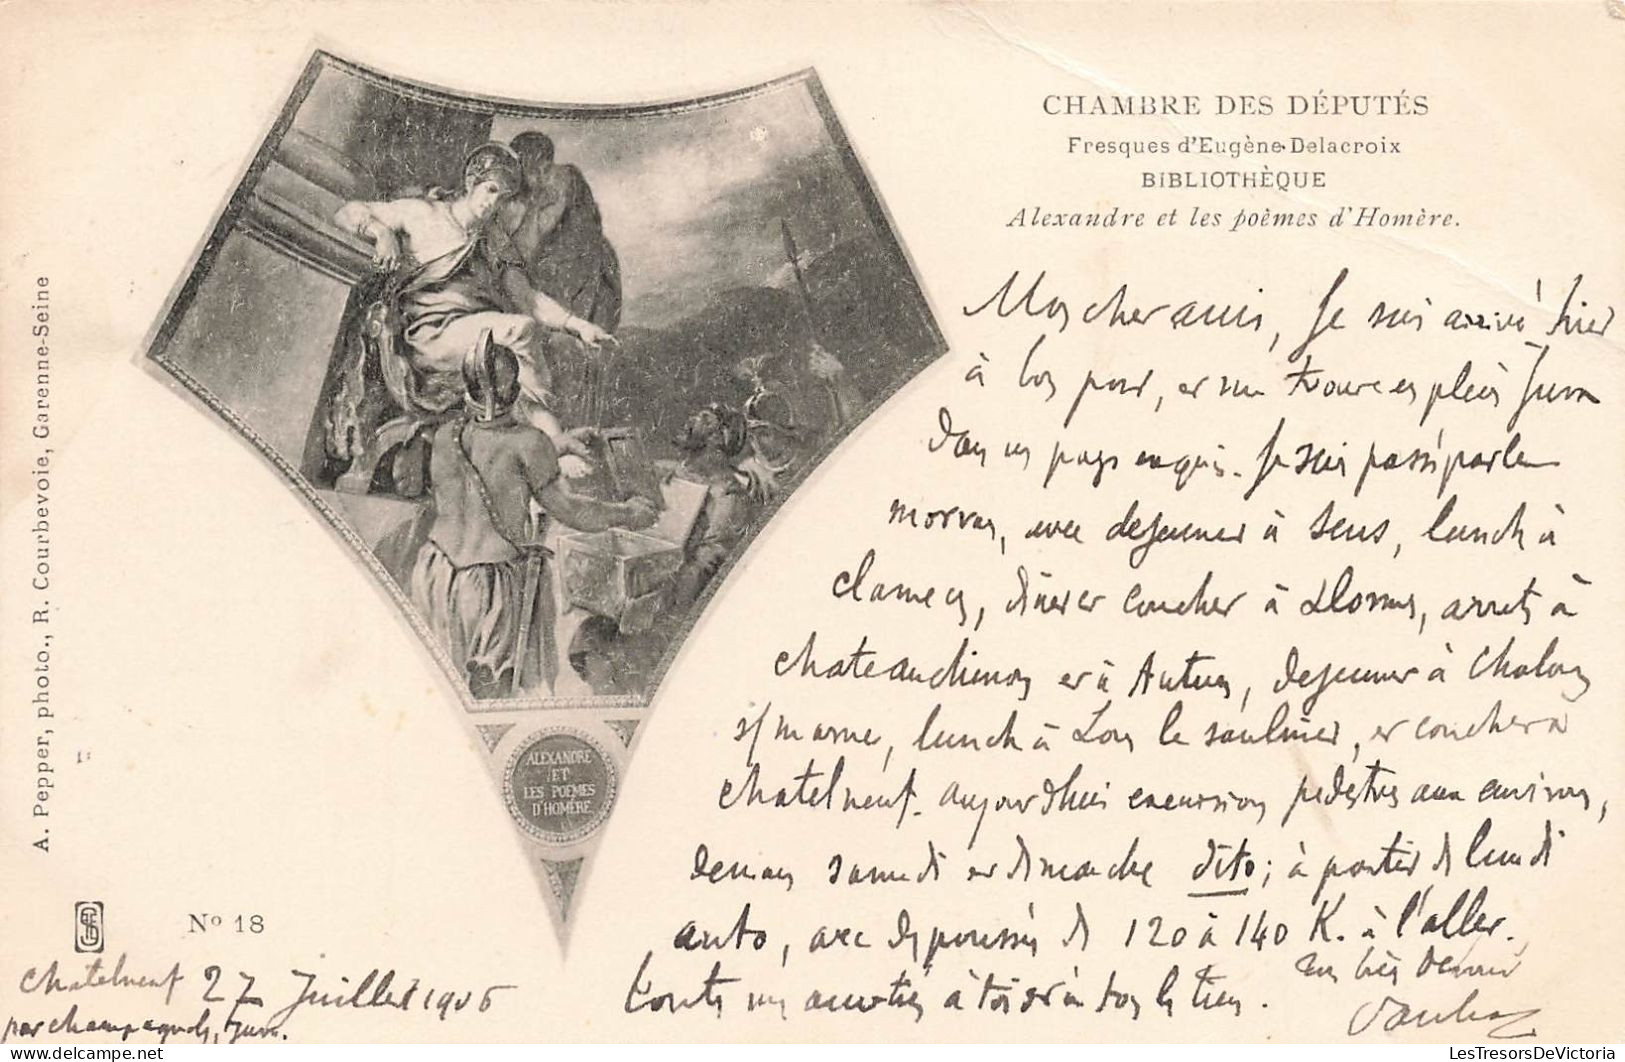 CHAMBRE DES DÉPUTÉS
Fresques d'Eugène Delacroix
BIBLIOTHÈQUE
Alexandre et les poèmes d'Homère.
Mon cher ami, Je suis arrivé hier
à bon port, et me trouve en plein Jura
dans un pays exquis. Je suis passé par le
morvan, avec dejeuner à Sens, lunch à
clamecy, diner et coucher à Lormes, arrets à
chateauchinon et à Autun, dejeuner à Chalon
s/ marne, lunch à Lons le saulnier, et coucher à
chatelneuf. aujourdhui excursion pedestres aux environs,
demain samedi et dimanche dito; à partir de lundi
auto, avec des poussées de 120 à 140 K. à l'aller.
Toutes mes amitiés à toi et à tous les tiens.
A. Pepper, photo., R. Courbevoie, Garenne-Seine
ALEXANDRE
ET
LES POEMES
D'HOMÈRE
No 18
Chatelneuf 27 Juillet 1906
par champagnole, Jura.
LesTresorsDeVictoria.com